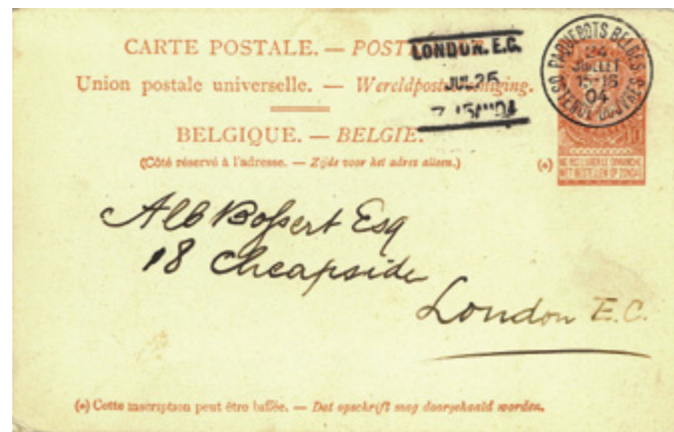 CARTE POSTALE. — POST
Union postale universelle. — Wereldpostvereeniging.
BELGIQUE. — BELGIE.
(Côté réservé à l'adresse. — Zijde voor het adres alleen.)
LONDON. E.C.
JUL 25
7 15AM 04
PAQUEBOTS BELGES
24
JUILLET
15-16
04
OSTENDE DOUVRES
10
NE PAS LIVRER LE DIMANCHE
NIET BESTELLEN OP ZONDAG
(*)
Alb Bossert Esq
18 Cheapside
London E.C.
(*) Cette inscription peut être biffée. — Dit opschrift mag doorgehaald worden.